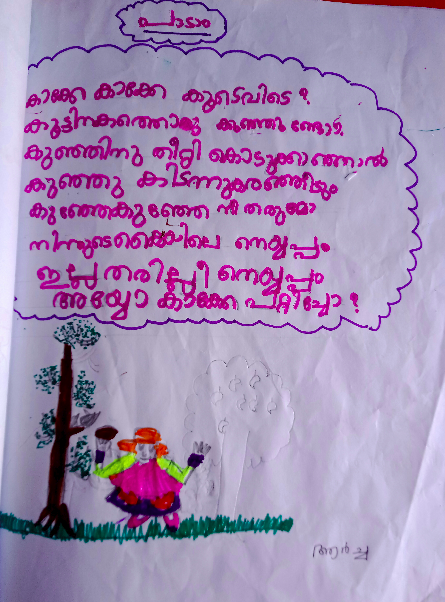 പാടാം
കാക്കേ കാക്കേ കൂടെവിടെ?
കൂട്ടിനകത്തൊരു കുഞ്ഞുണ്ടോ.
കുഞ്ഞിനു തീറ്റി കൊടുക്കാഞ്ഞാൽ
കുഞ്ഞു കിടന്നു കരഞ്ഞീടും
കുഞ്ഞേ കുഞ്ഞേ നീ തരുമോ
നിന്നുടെ കൈയിലെ നെയ്യപ്പം
ഇല്ല തരില്ലീ നെയ്യപ്പം
അയ്യോ കാക്കേ പറ്റിച്ചോ?